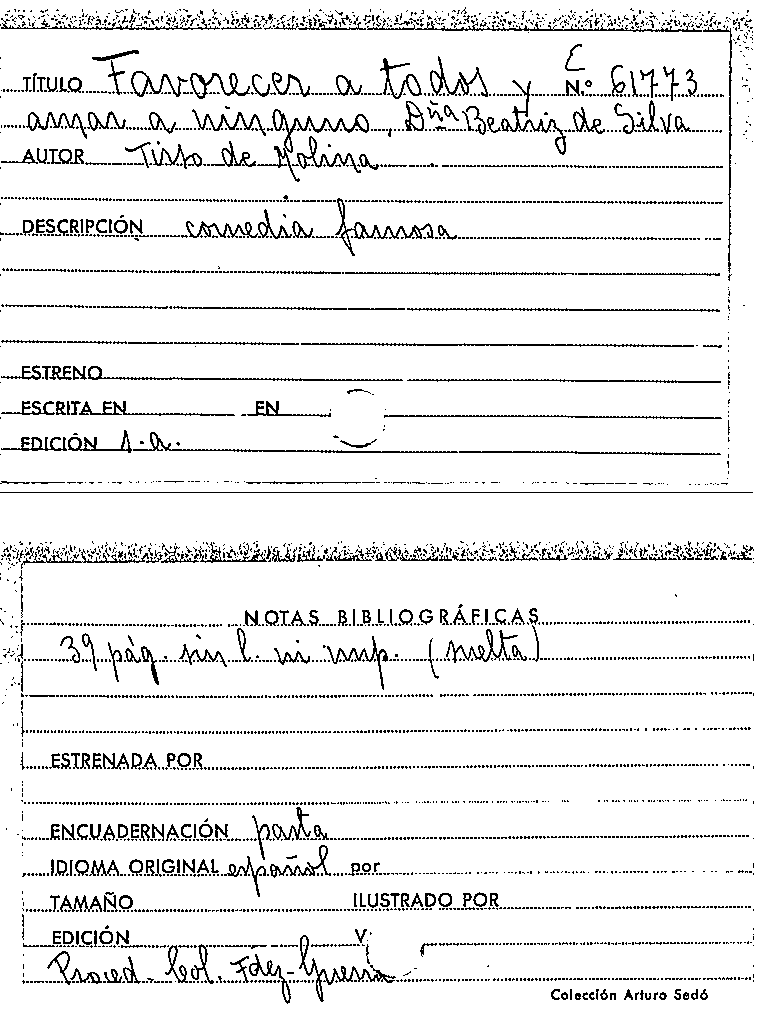 E
TÍTULO Favorecer a todos y N.º 61773
amar a ninguno, Dña Beatriz de Silva
AUTOR Tirso de Molina
DESCRIPCIÓN comedia famosa
ESTRENO
ESCRITA EN EN
EDICIÓN s.a.
NOTAS BIBLIOGRÁFICAS
39 pág. sin l. ni imp. (suelta)
ESTRENADA POR
ENCUADERNACIÓN pasta
IDIOMA ORIGINAL español por
TAMAÑO ILUSTRADO POR
EDICIÓN V.
Proced. Col. Fdez-Guerra
Colección Arturo Sedó